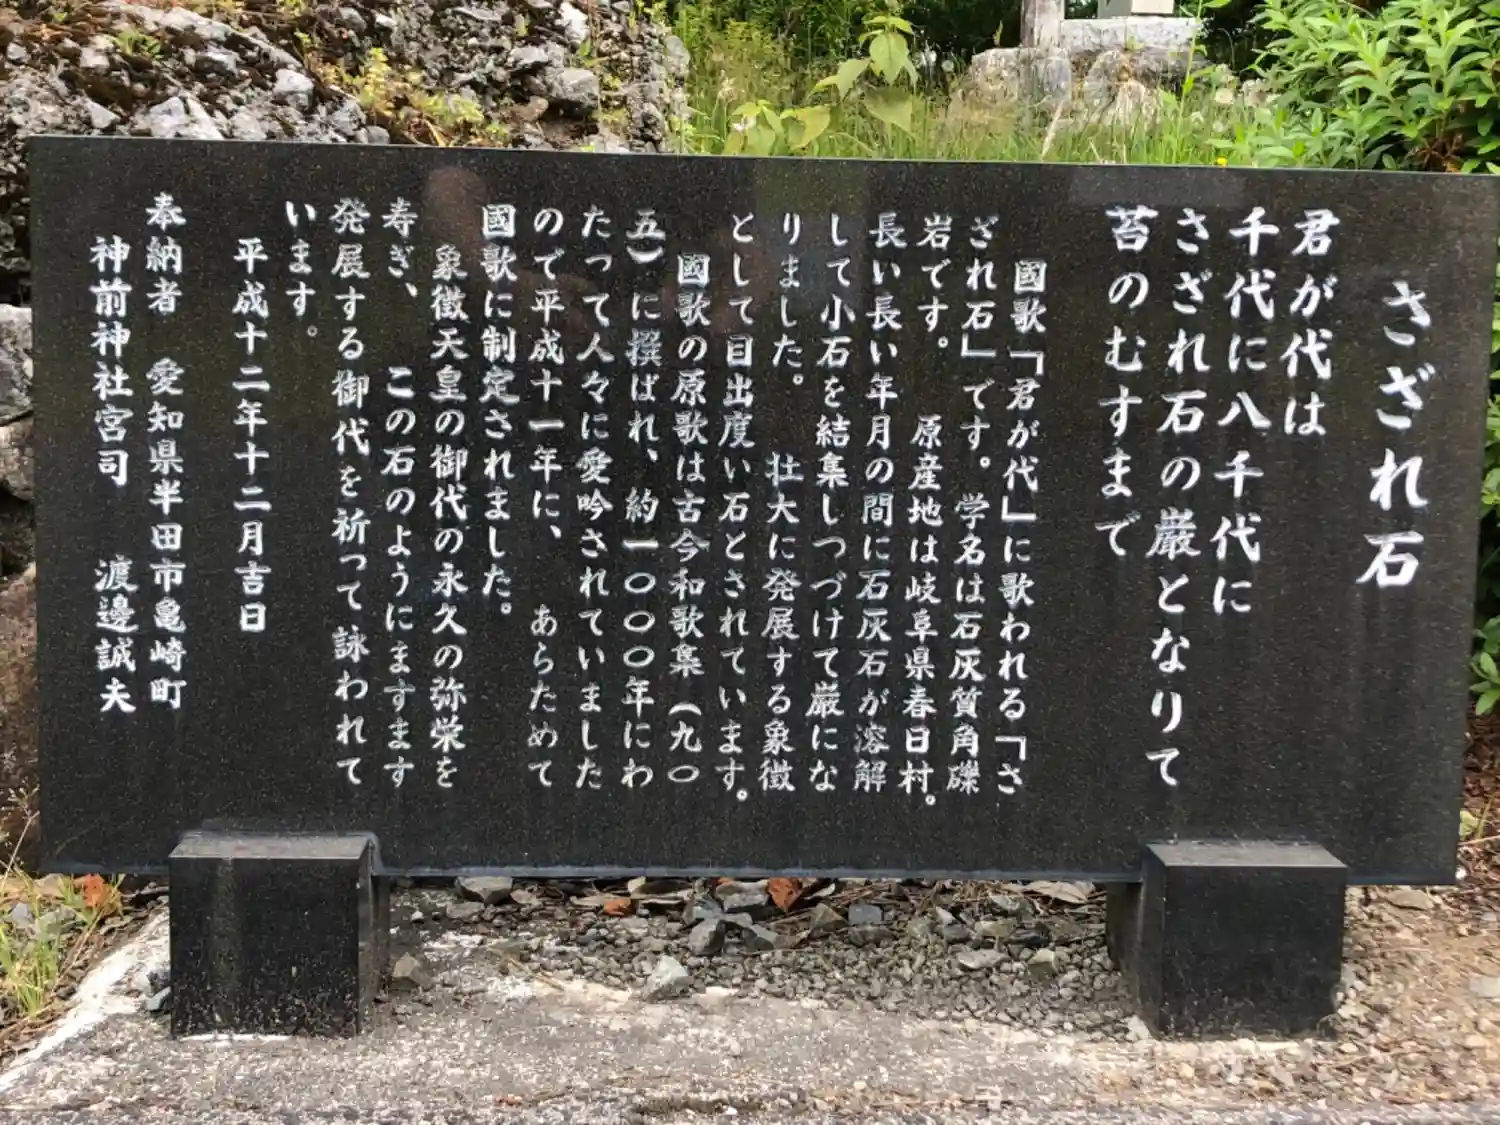 さざれ石
君が代は
千代に八千代に
さざれ石の巌となりて
苔のむすまで
國歌「君が代」に歌われる「さ
ざれ石」です。学名は石灰質角礫
岩です。　原産地は岐阜県春日村。
長い長い年月の間に石灰石が溶解
して小石を結集しつづけて巌にな
りました。　壮大に発展する象徴
として目出度い石とされています。
國歌の原歌は古今和歌集（九〇
五）に撰ばれ、約一〇〇〇年にわ
たって人々に愛吟されていました
ので平成十一年に、　あらためて
國歌に制定されました。
象徴天皇の御代の永久の弥栄を
寿ぎ、　この石のようにますます
発展する御代を祈って詠われて
います。
平成十二年十二月吉日
奉納者　愛知県半田市亀崎町
神前神社宮司　渡邉誠夫